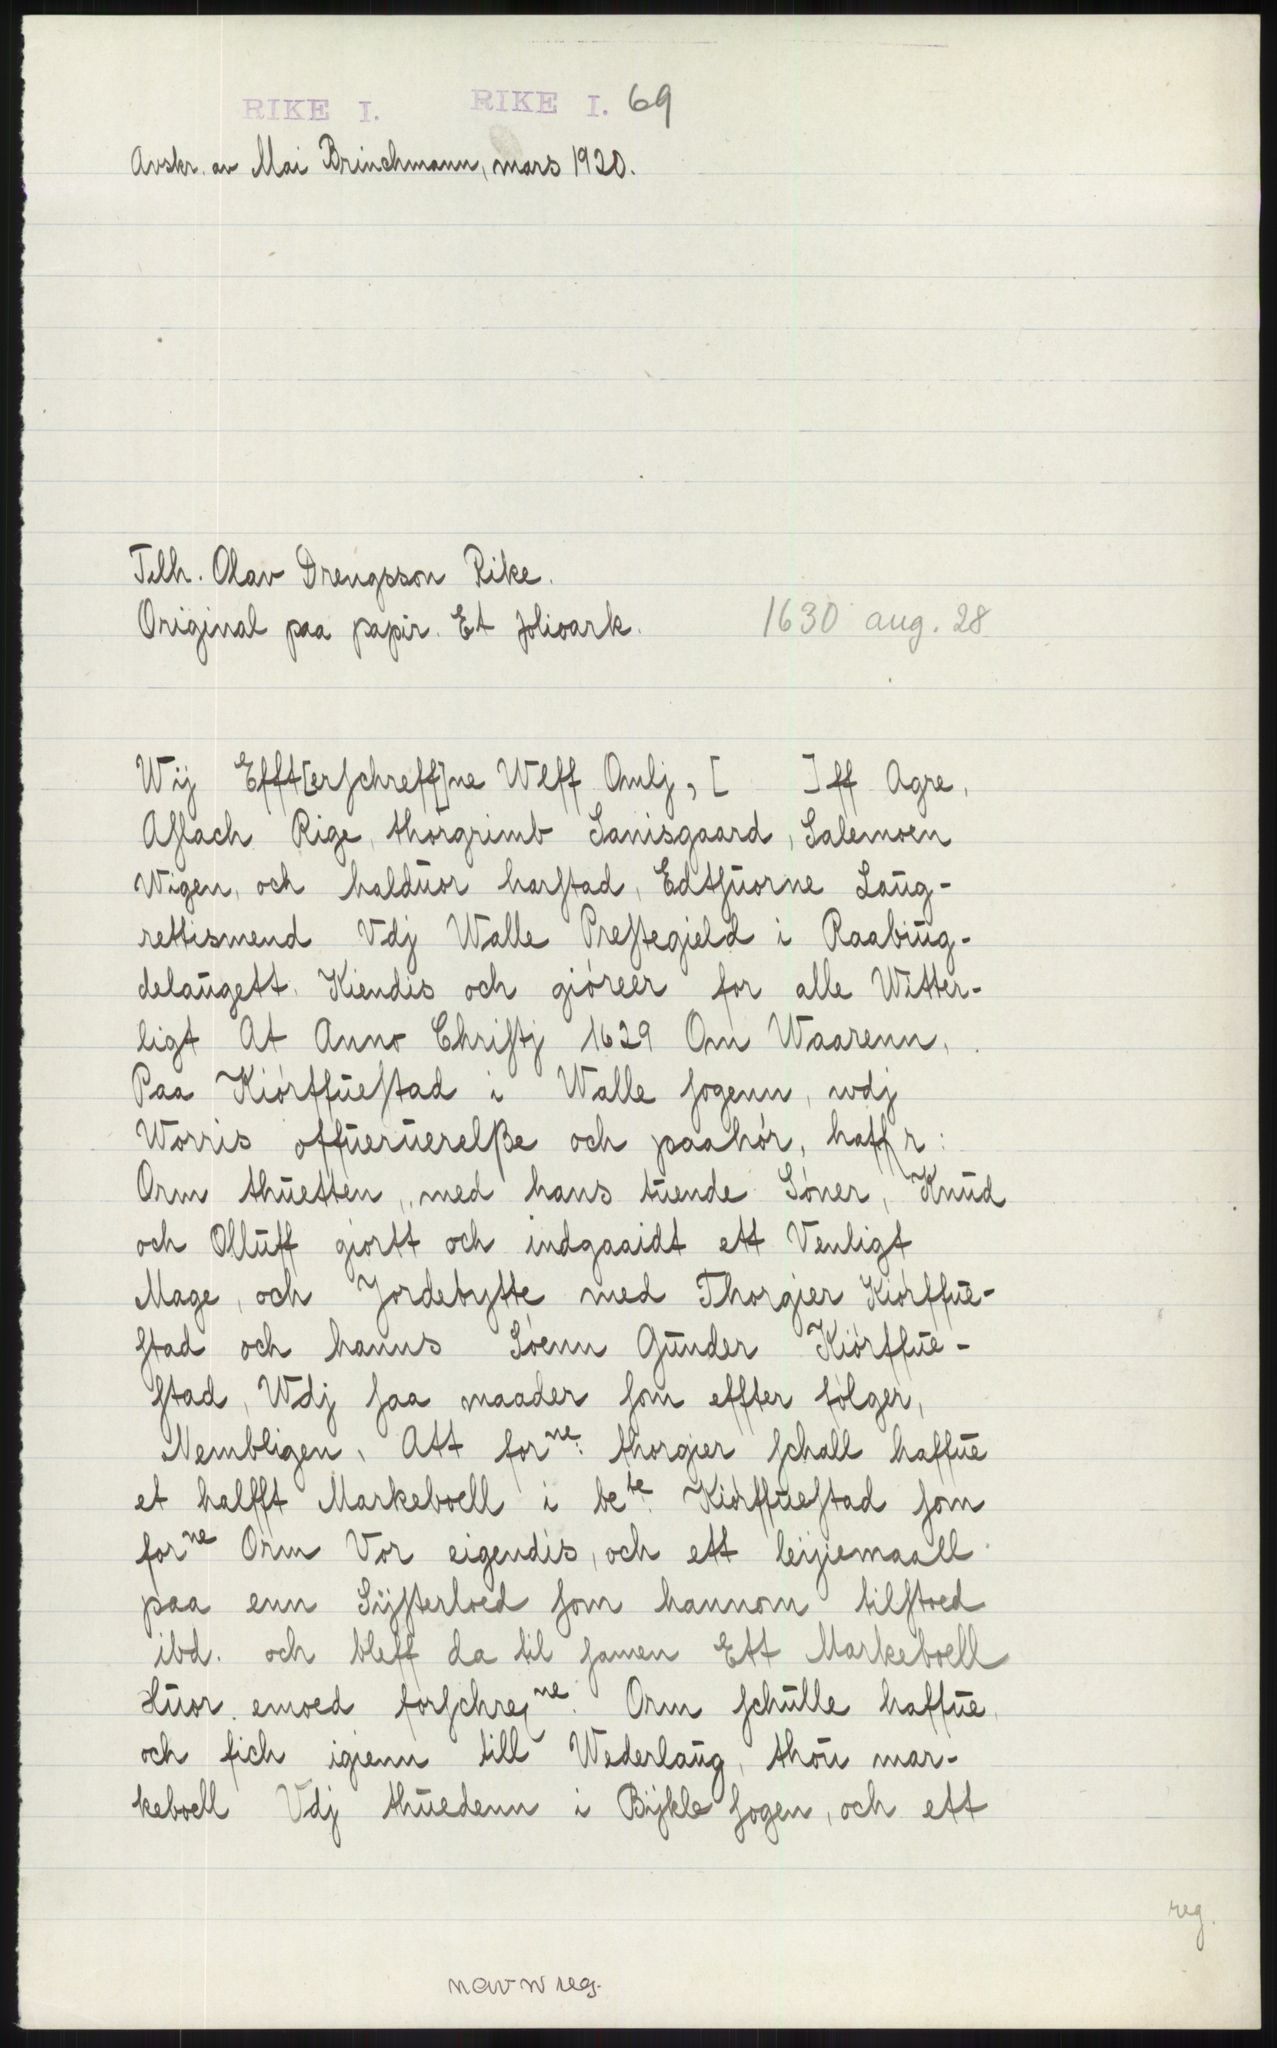 RIKE I. RIKE I. 69
Avskr. av Mai Brinchmann, mars 1920.
Tilh. Olav Drengsson Rike.
Original paa papir. Et folioark. 1630 aug. 28
Wij Efft[erſchreff]ne Wlff Omlj, [ ]ff Agre,
Aſlach Rige, thorgrimb Sanisgaard, Salemoen
Wigen, och halduor harſtad, Edtſuorne Laug-
rettismend Vdj Walle Preſtegield i Raabiug-
delaugett. Kiendis och giöreer for alle Witter-
ligt At Anno Chriſtj 1629 Om Waarenn,
Paa Kiörffueſtad i Walle ſogenn, wdj
Worris offueruerelße och paahör, haffr:
Orm thuetten, med hans tuende Söner, Knud
och Olluff giortt och indgaaidt ett Venligt
Mage, och Jordebytte med Thorgier Kiörffue-
ſtad och hanns Söenn Gunder Kiörffue-
ſtad, Wdj ſaa maader ſom effter fölger,
Nembligen, Att forne: thorgier ſchall haffue
et halfft Markeboell i bete: Kiörffueſtad ſom
forne Orm Vor eigendis, och ett leijiemaall
paa enn Sijſterloed ſom hannom tilſtoed
ibd. och bleff da til ſamen Ett Markeboell
Huor emoed forſchrefne: Orm ſchulle haffue
och fich igienn till Wederlaug, thou mar-
keboell Vdj thuedenn i Bijkle ſogen, och ett
reg.
navn reg.